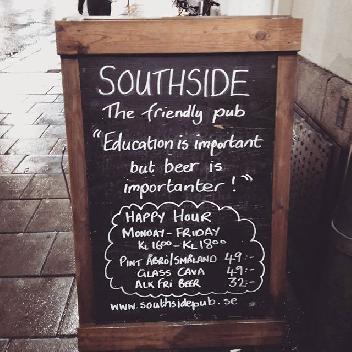 SOUTHSIDE
The friendly pub
"Education is important
but beer is
importanter!"
HAPPY HOUR
MONDAY-FRIDAY
KL 16⁰⁰-KL 18⁰⁰
PINT ÅBRO/SMÅLAND 49:-
GLASS CAVA 49:-
ALKFRI BEER 32:-
www.southsidepub.se